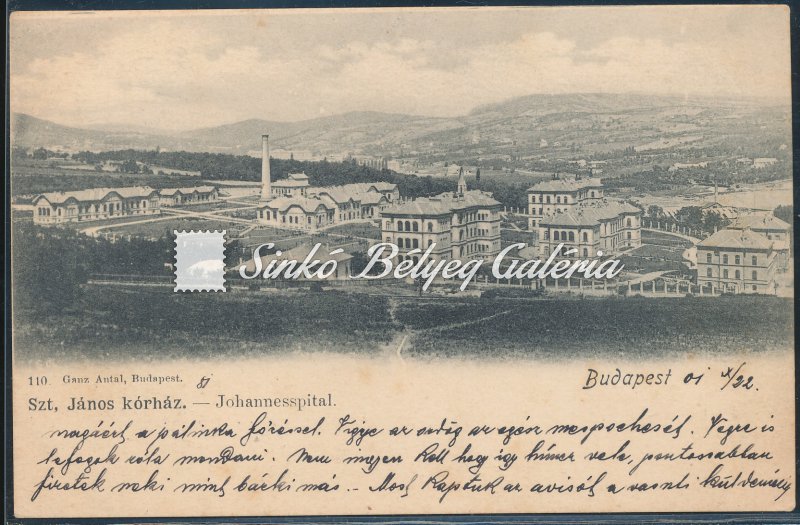 Sinkó Bélyeg Galéria
110. Ganz Antal, Budapest. 81
Szt, János kórház. — Johannesspital.
Budapest 01 X/22.
magáért a pálinka főzéssel. Vigye az ördög az egész mespochesét. Vegre is
le fogok róla mondani. Nem ingen kell hogy így hímez vele, pontosabban
fizetek neki mint bárki más. - Most kaptuk az avisót a vasuti küldemény